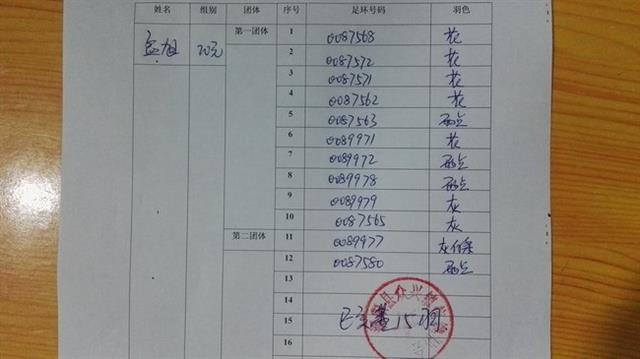 姓名 组别 团体 序号 足环号码 羽色
孟旭 70元 第一团体 1 0087568 花
2 0087572 花
3 0087571 花
4 0087562 花
5 0087563 雨点
6 0089971 花
7 0089972 雨点
8 0089978 雨点
9 0089979 灰
10 0087565 灰
第二团体 11 0089977 灰
12 0087580 雨点
13
14
15 15羽
16